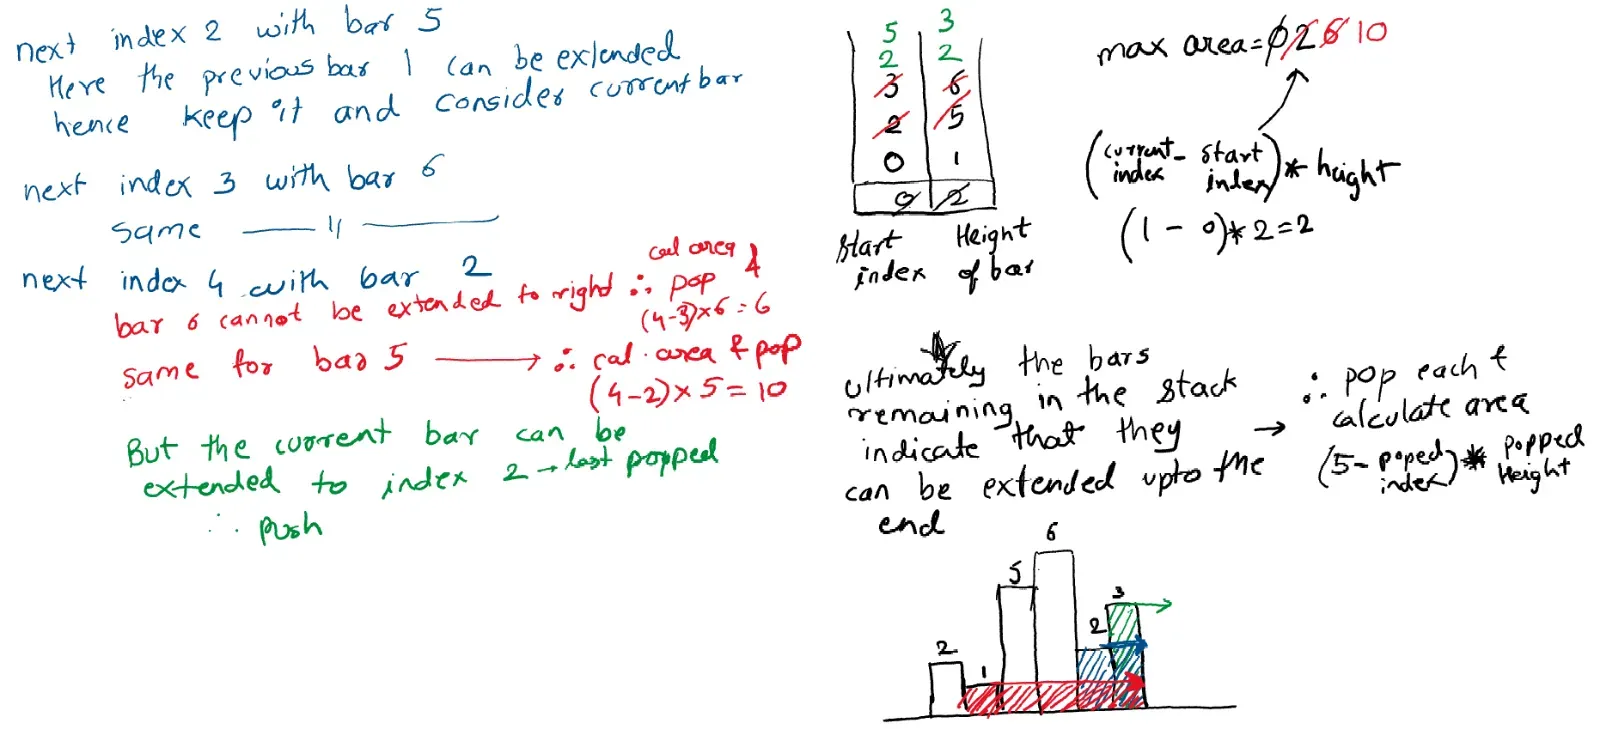 next index 2 with bar 5
Here the previous bar 1 can be extended
hence keep it and consider current bar
next index 3 with bar 6
same — 11 —
next index 4 with bar 2
bar 6 cannot be extended to right ∴ pop &
cal area
(4-3)×6=6
same for bar 5 → ∴ cal. area & pop
(4-2)×5=10
But the current bar can be
extended to index 2 → last popped
∴ push
5 3
2 2
3 6
2 5
0 1
0 2
Start index
Height of bar
max area = 0 2 6 10
(current index - start index) * height
(1 - 0) * 2 = 2
ultimately the bars
remaining in the stack
indicate that they
can be extended upto the
end
→ ∴ pop each &
calculate area
(5 - poped index) * popped Height
2
1
5
6
2
3